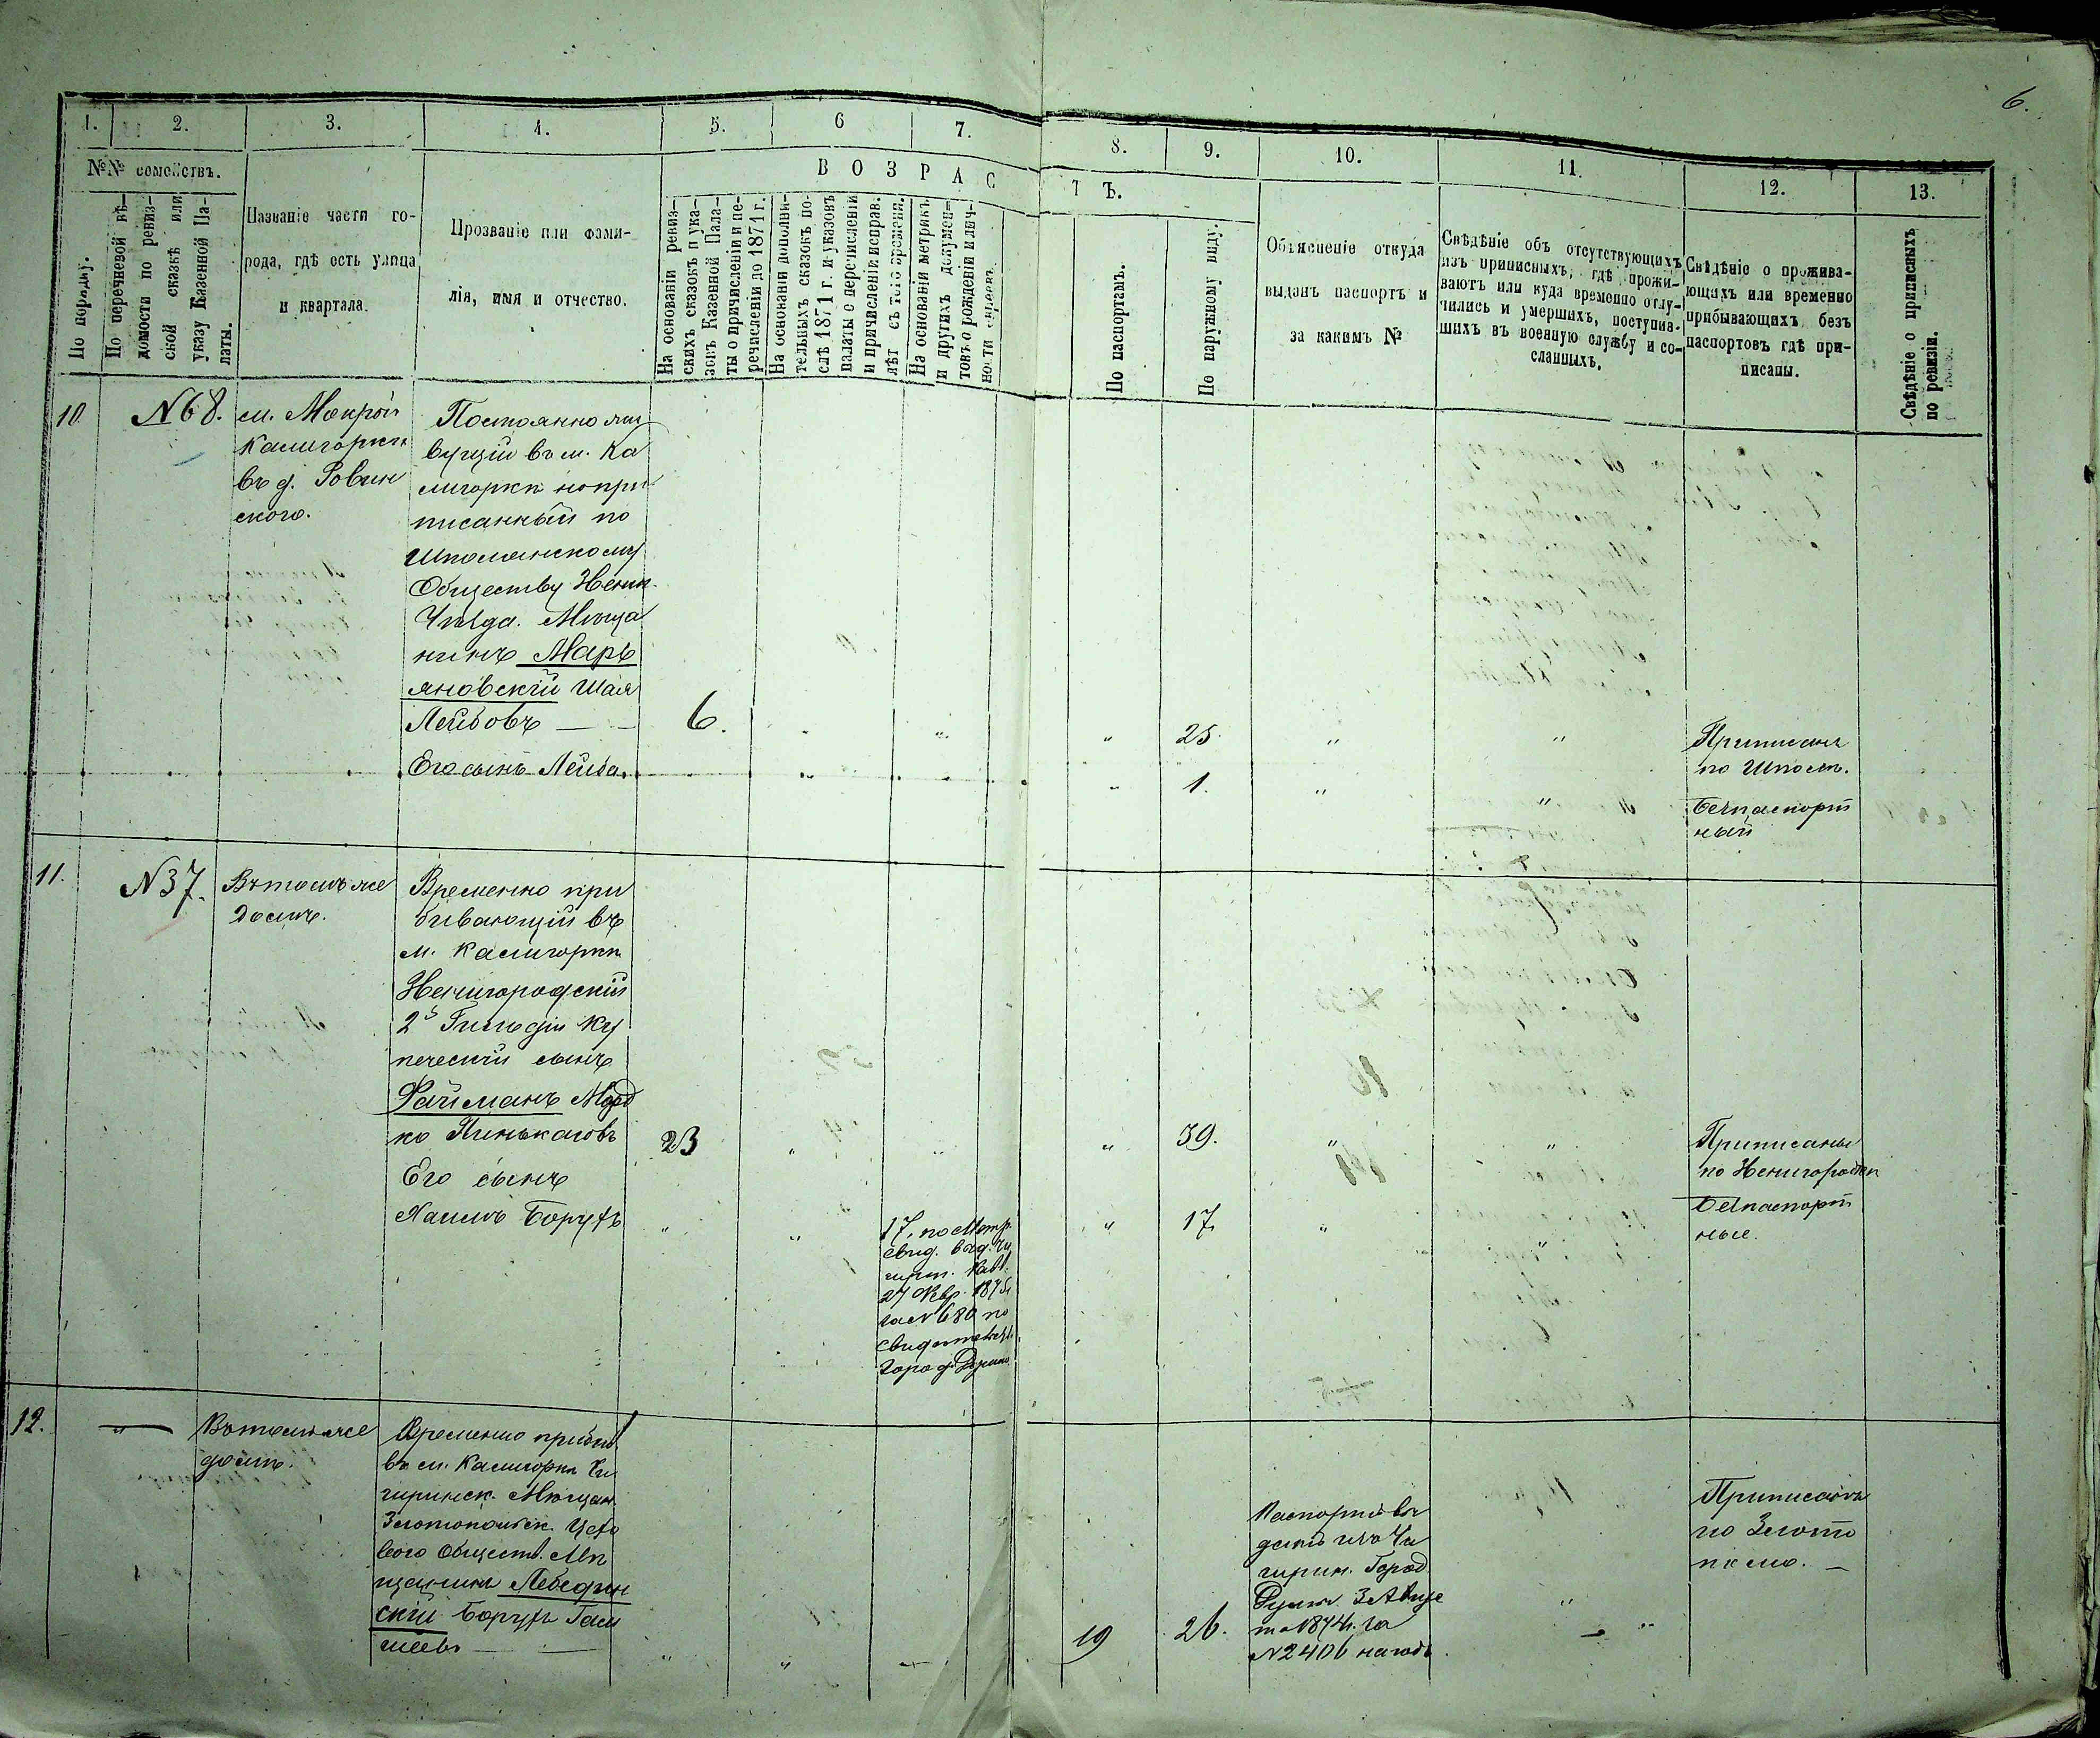 6.
1.
2.
3.
4.
5.
6
7.
8.
9.
10.
11.
12.
13.
№№ семействъ.
ВОЗРАСТЪ.
По порядку.
По перечневой вѣ-
домости по ревиз-
ской сказкѣ или
указу Казенной Па-
латы.
Названіе части го-
рода, гдѣ есть улица
и квартала.
Прозваніе или фами-
лія, имя и отчество.
На основаніи ревиз-
скихъ сказокъ и ука-
зовъ Казенной Пала-
ты о причисленіи и пе-
речисленіи до 1871 г.
На основаніи дополни-
тельныхъ сказокъ по-
слѣ 1871 г. и указовъ
палаты о перечисленіи
и причисленіи исправ.
лѣт съ того времени.
На основаніи метрикъ
и другихъ докумен-
товъ о рожденіи и лич-
ности евреевъ.
По паспортамъ.
По наружному виду.
Объясненіе откуда
выданъ паспортъ и
за какимъ №
Свѣдѣніе объ отсутствующихъ
изъ приписныхъ, гдѣ прожи-
ваютъ или куда временно отлу-
чились и умершихъ, поступив-
шихъ въ военную службу и со-
сланныхъ.
Свѣдѣніе о прожива-
ющихъ или временно
прибывающихъ безъ
паспортовъ гдѣ при-
писаны.
Свѣдѣніе о приписныхъ
по ревизіи.
10
№68.
м. Мокрой
Калигорки
въ д. Ровин
ского.
Постоянно жи
вущій въ м. Ка
лигоркѣ но при
писанный по
Шполянскому
Обществу Звениг.
Уѣзда. Мѣща
нинъ Марь
яновскій Шая
Лейбовъ — 6. " " " 25. " "
Приписанъ
по Шполѣ.
Его сынъ Лейба. " " 1. " "
Безпаспорт
ный
11.
№37.
Въ томъ же
домѣ.
Временно при
бивающій въ
м. Калигоркѣ
Звенигородскій
2й Гильдіи Ку
печескій сынъ
Файманъ Морд
ко Пинькасовъ 23 " " " 39. " "
Приписаны
по Звенигородкѣ
Безпаспорт
ные.
Его сынъ
Хаимъ Борухъ " "
17, по Метр.
свид. выд. Чи
гирин. Равв.
27 Февр. 1875
за №680 по
Город. Думы
" 17. " "
12.
"
Въ томъ же
домѣ.
Временно прибыв
въ м. Калигорку Чи
гиринск. Мѣщан.
Златопольск. Цехо
вого Обществ. Мѣ
щанинъ Лебедин
скій Борухъ Гам
шеевъ — " " " 19 26.
Паспортъ вы
данъ изъ Чи
гирин. Город
Думы 3 Авгус
та 1874 г. за
№2406 на годъ.
" "
Приписанъ
по Злато
полю. —